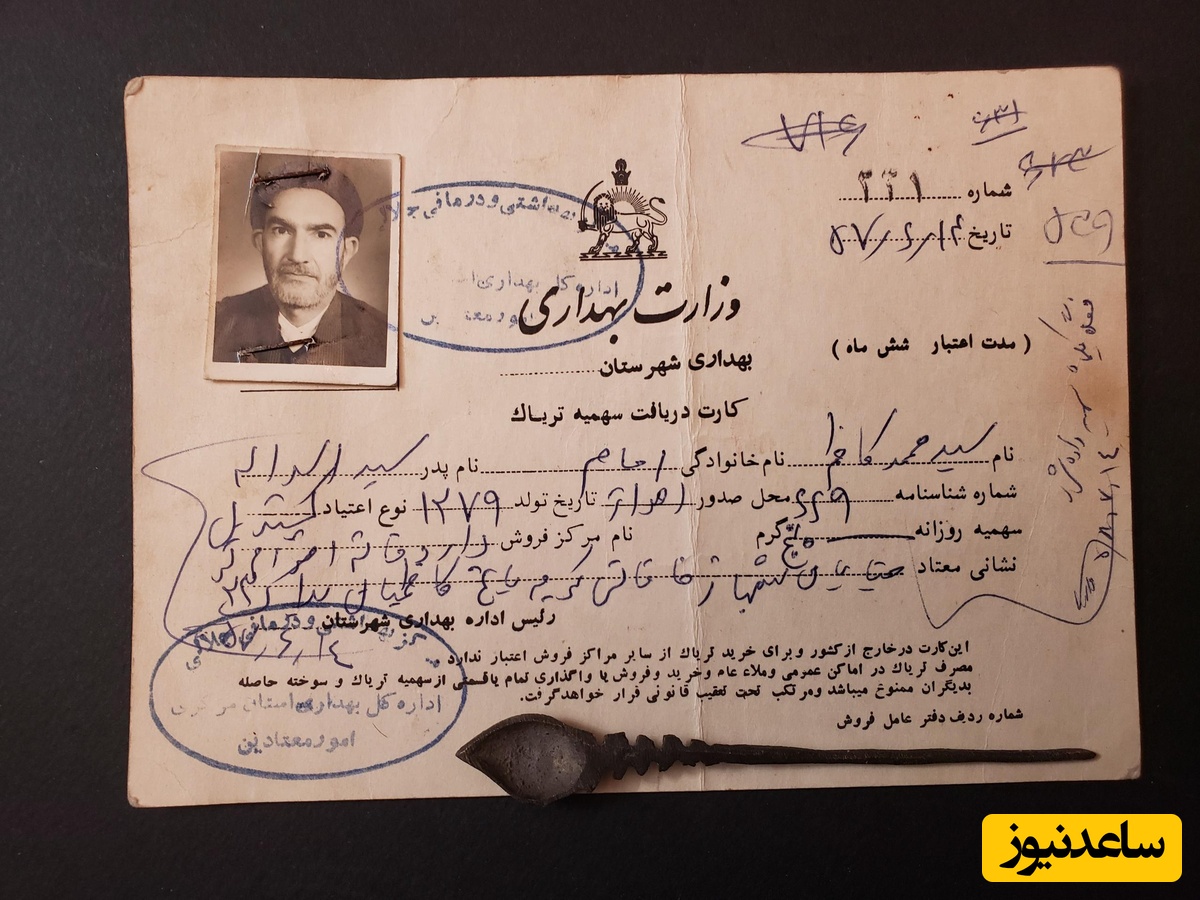 ۷۱۶
شماره ۲۲۱
تاریخ ۵۷/۶/۱۴
وزارت بهداری
( مدت اعتبار شش ماه )
بهداری شهرستان
کارت دریافت سهمیه تریاک
نام سید محمد کاظم نام خانوادگی امام نام پدر سید اسداله
شماره شناسنامه ۶۶۹ محل صدور اهواز تاریخ تولد ۱۲۷۹ نوع اعتیاد کشیدنی
سهمیه روزانه پنج گرم نام مرکز فروش داروخانه احترام
نشانی معتاد خیابان شهباز
رئیس اداره بهداری شهرستان
۱۴/۶
این کارت در خارج از کشور و برای خرید تریاک از سایر مراکز فروش اعتبار ندارد
مصرف تریاک در اماکن عمومی و ملاء عام و خرید و فروش یا واگذاری تمام یا قسمتی از سهمیه تریاک و سوخته حاصله
بدیگران ممنوع میباشد و مرتکب تحت تعقیب قانونی قرار خواهد گرفت.
شماره ردیف دفتر عامل فروش
بهداشتی و درمانی
اداره کل بهداری
امور
اداره کل بهداری استان مرکزی
امور معتادین
ساعدنیوز